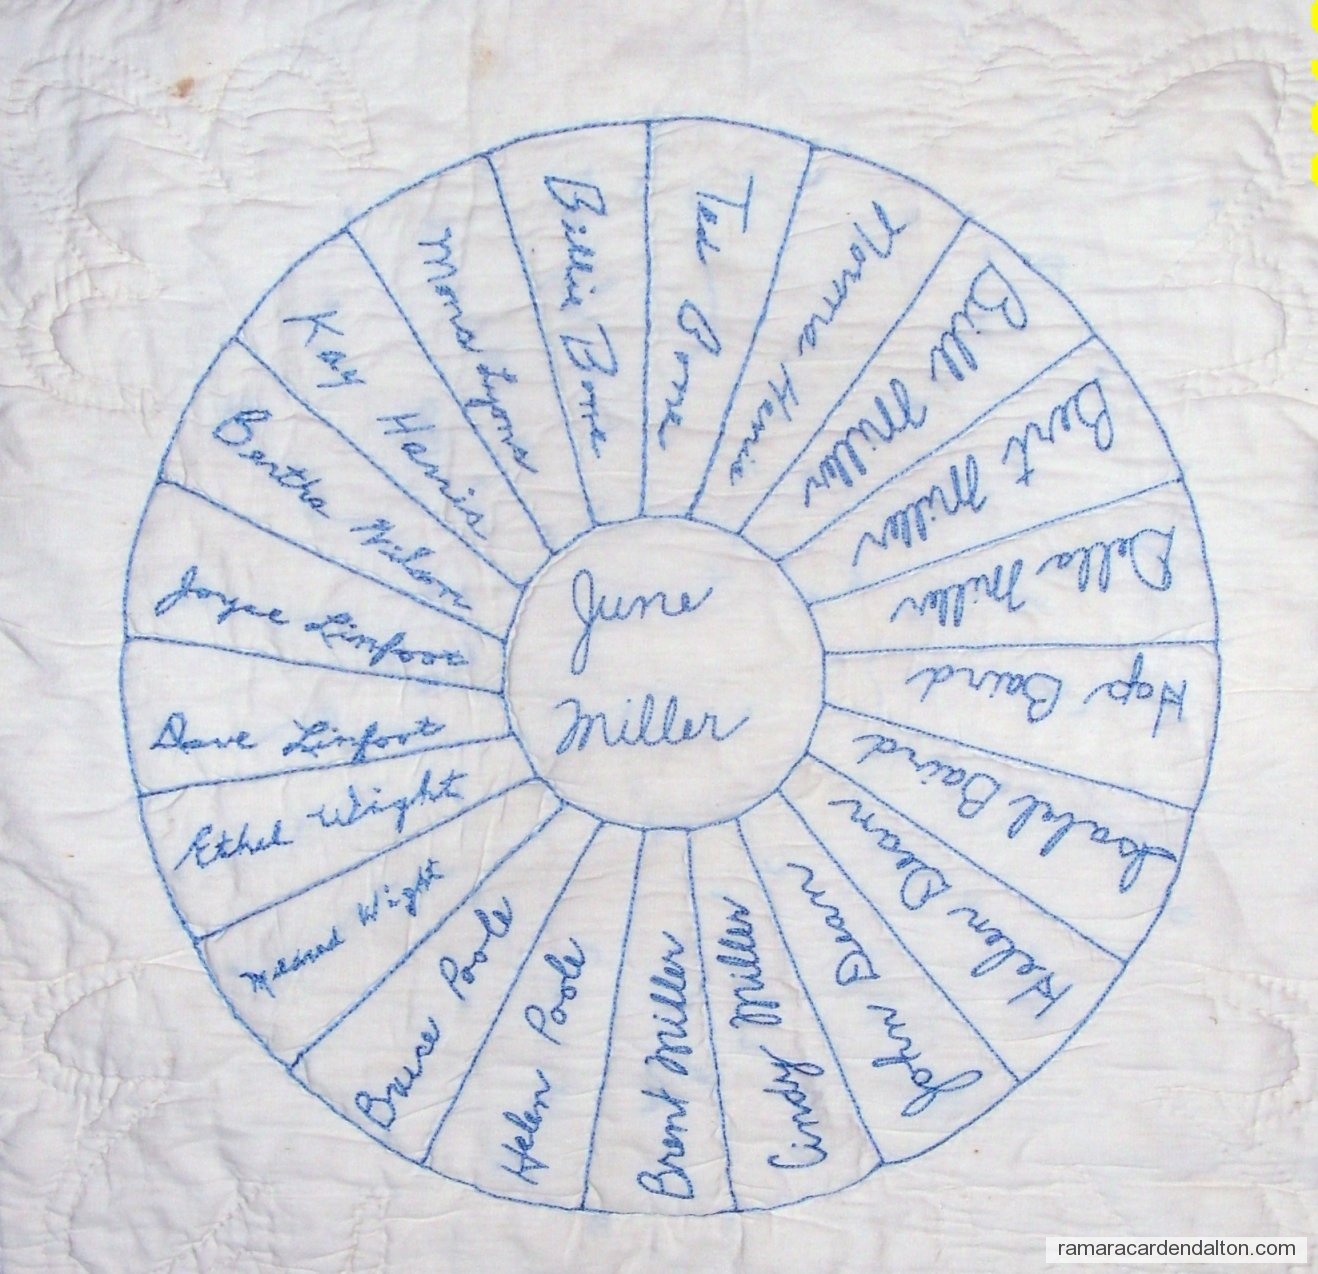 June
Miller
Ted Bone
Norma Harris
Bill Miller
Bert Miller
Della Miller
Hap Baird
Isabel Baird
Helen Dean
John Dean
Cindy Miller
Brent Miller
Helen Poole
Bruce Poole
Mildred Wight
Ethel Wright
Dave Linfoot
Joyce Linfoot
Bertha Wilson
Kay Harris
Mona Lyons
Billie Bone
ramaracardendalton.com